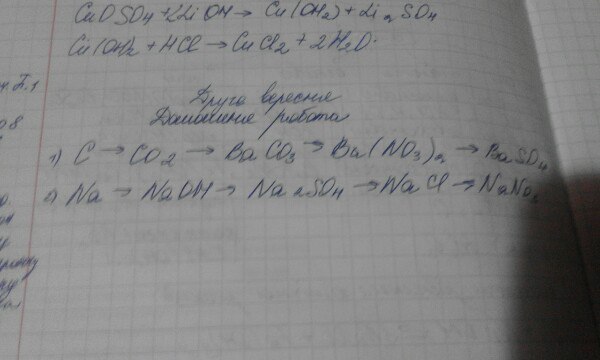 CuOSO4 + 2LiOH → Cu(OH2) + Li2SO4
Cu(OH)2 + HCl → CuCl2 + 2H2O
Друге вересня
Домашня робота
1) C → CO2 → BaCO3 → Ba(NO3)2 → BaSO4
2) Na → NaOH → Na2SO4 → NaCl → NaNO3